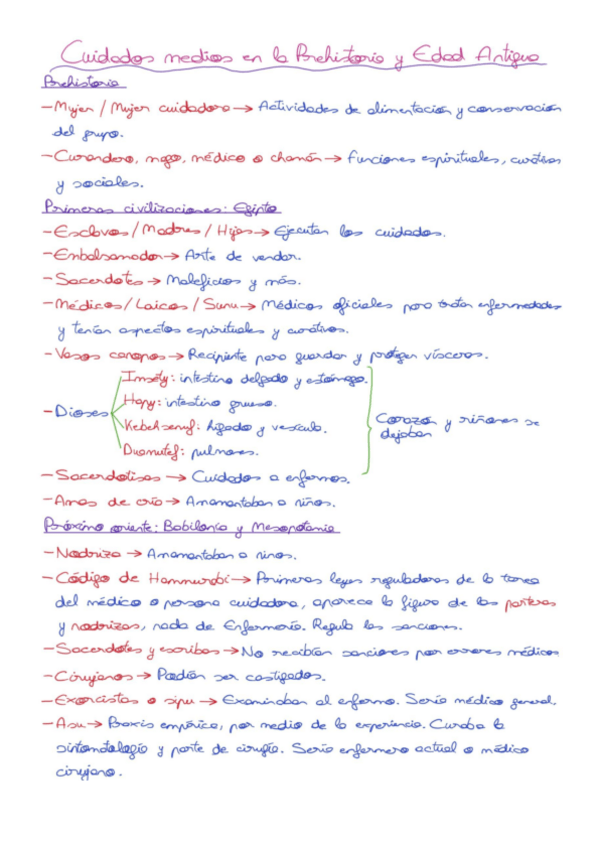 Cuidados medios en la Prehistoria y Edad Antigua
Prehistoria
-Mujer / Mujer cuidadora→ Actividades de alimentación y conservación
del grupo.
-Curandero, mago, médico o chamán→ Funciones espirituales, curativas
y sociales.
Primeras civilizaciones: Egipto
-Esclavos/Madres/Hijas→ Ejecutan los cuidados.
-Embalsamador→ Arte de vendar.
-Sacerdotes→ Maleficios y más.
-Médicos/Laicos/Sunu→ Médicos oficiales para tratar enfermedades
y tenían aspectos espirituales y curativos.
-Vasos canopos→ Recipiente para guardar y proteger vísceras.
-Dioses
Imsety: intestino delgado y estómago.
Hapy: intestino grueso.
Kebehsenuf: hígado y vesícula.
Duamutef: pulmones.
Corazón y riñones se
dejaban
-Sacerdotisas → Cuidados a enfermos.
-Amas de cría→ Amamantaban a niños.
Próximo oriente: Babilonia y Mesopotamia
-Nodriza → Amamantaban a ninos.
-Código de Hammurabi→ Primeras leyes reguladoras de la tarea
del médico o persona cuidadora, aparece la figura de las parteras
y nodrizas, nada de Enfermería. Regula las sanciones.
-Sacerdotes y escribas→ No recibían sanciones por errores médicos
-Cirujanos→ Podían ser castigados.
-Exorcistas o sipu→ Examinaban al enfermo. Sería médico general.
-Asu→ Praxis empírica, por medio de la experiencia. Curaba la
sintomatología y parte de cirugía. Sería enfermero actual o médico
cirujano.